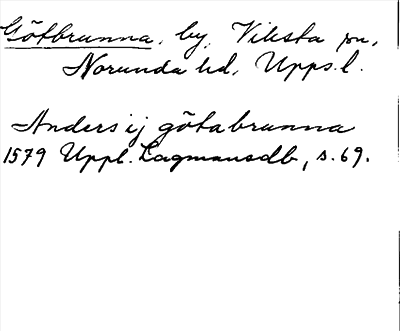 Götbrunna, by, Viksta sn,
Norunda hd, Upps. l.
Anders ij götabrunna
1579 Uppl. Lagmansdb, s. 69.